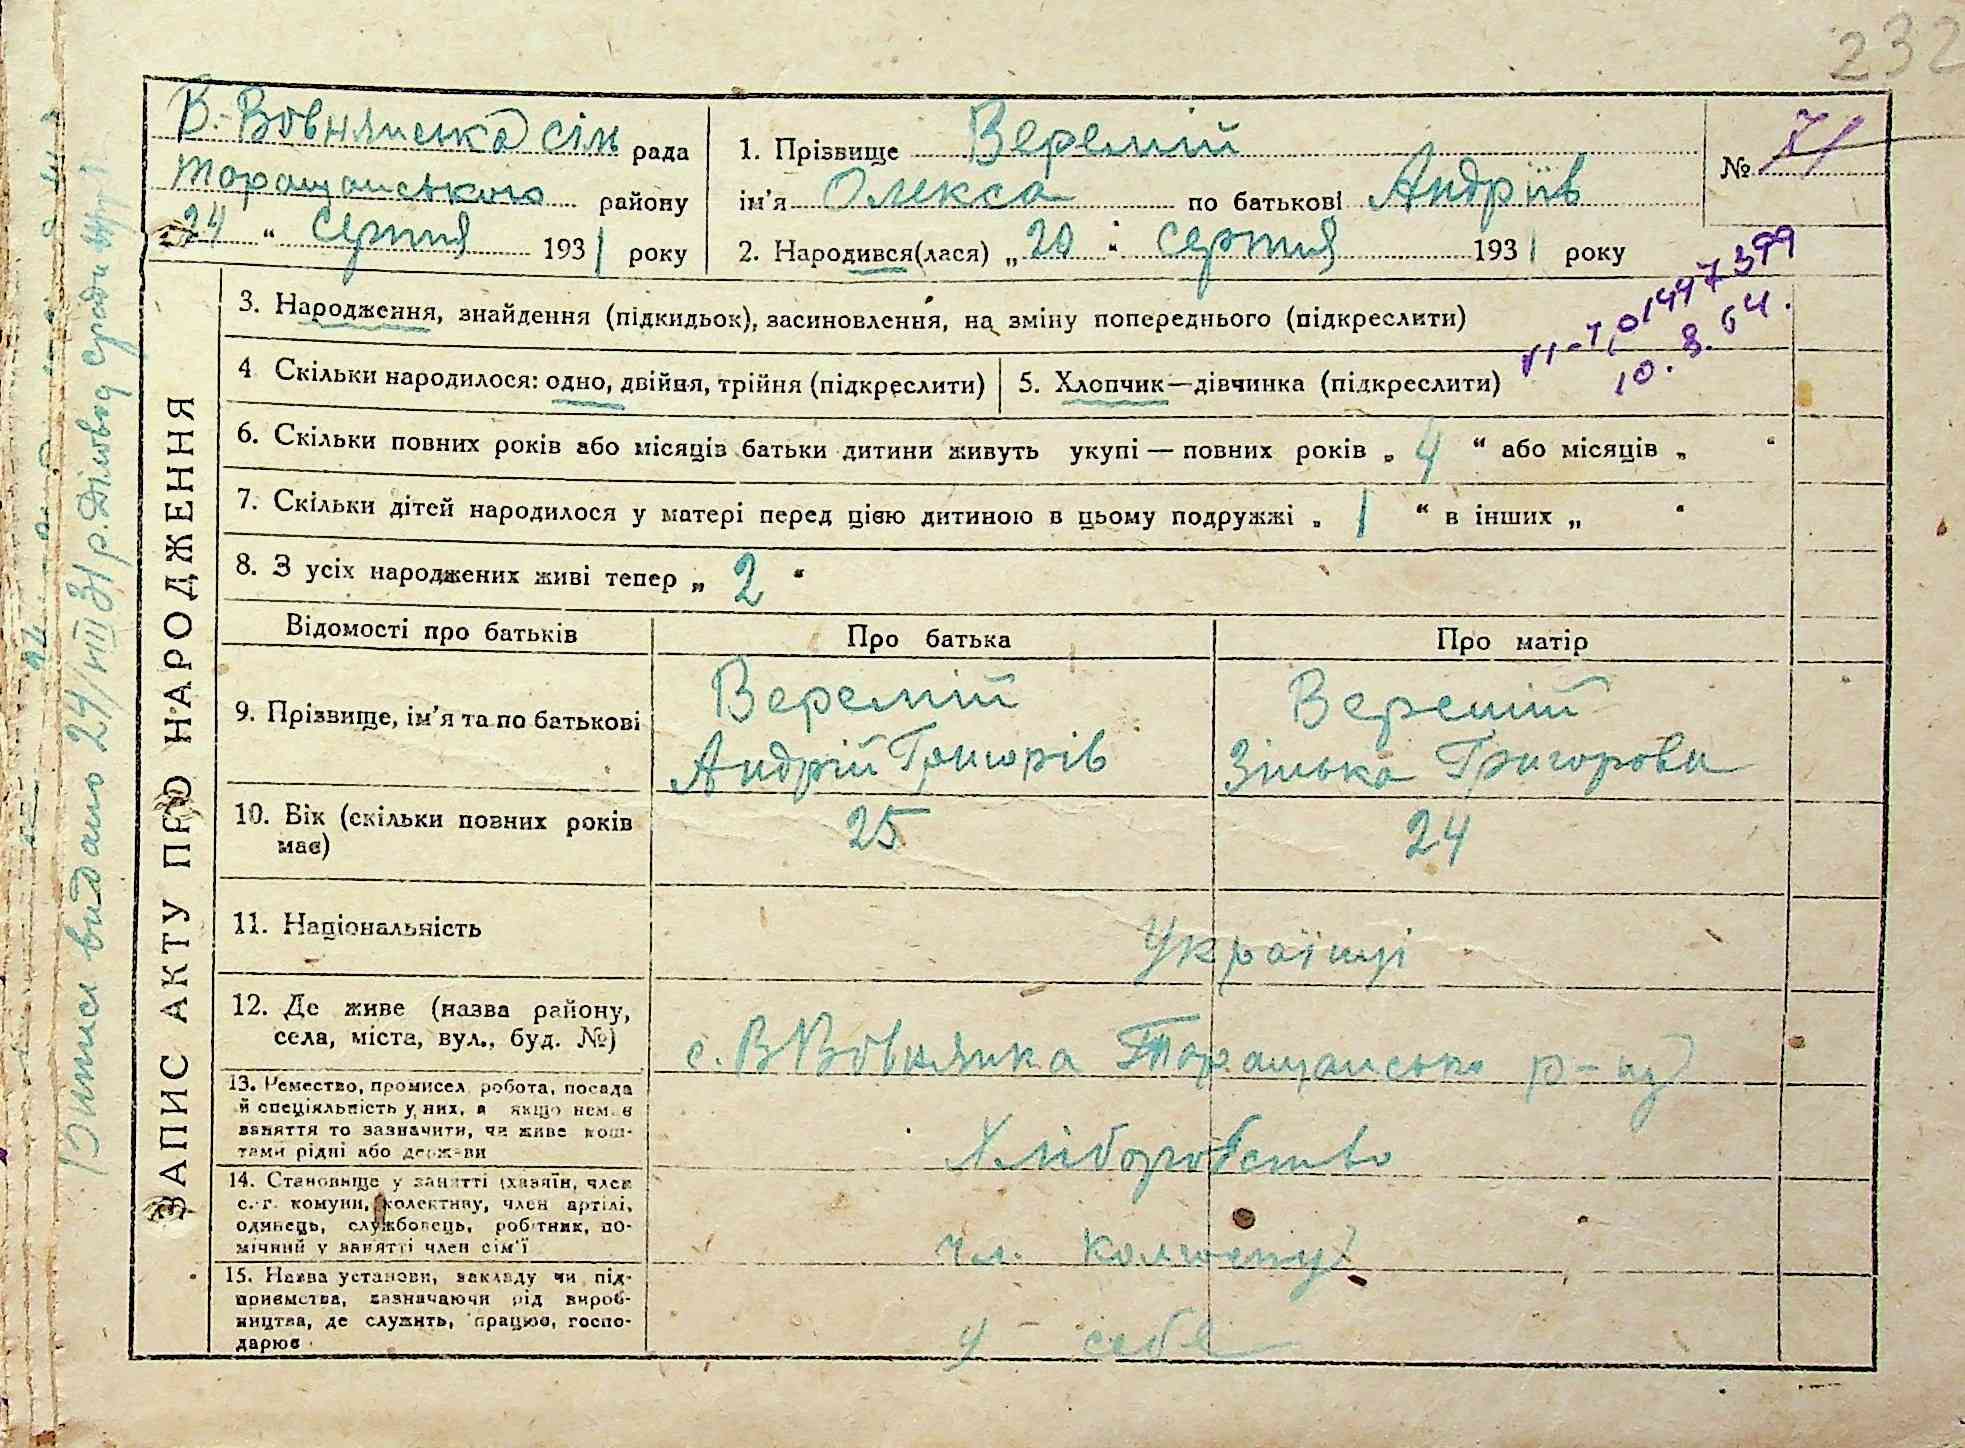 232
В.-Вовнянська сіль рада
Таращанського району
24 " Серпня 1931 року
1. Прізвище Веремій
ім'я Олекса по батькові Андріїв
2. Народився(лася) „ 20 " серпня 1931 року
№ 71
3. Народження, знайдення (підкидьок), засиновлення, на зміну попереднього (підкреслити)
10. 8. 64.
4 Скільки народилося: одно, двійня, трійня (підкреслити)
5. Хлопчик—дівчинка (підкреслити)
6. Скільки повних років або місяців батьки дитини живуть укупі — повних років „ 4 " або місяців „ "
7. Скільки дітей народилося у матері перед цією дитиною в цьому подружжі „ 1 " в інших „ "
8. З усіх народжених живі тепер „ 2 "
Відомості про батьків
Про батька
Про матір
9. Прізвище, ім'я та по батькові
Веремій
Андрій Григорів
Веремій
Зінька Григоровн
10. Вік (скільки повних років
має)
25
24
11. Національність
Українці
12. Де живе (назва району,
села, міста, вул., буд. №)
с. В Вовнянка Таращансько р-ну
13. Ремество, промисел, робота, посада
й спеціяльність у них, а якщо нема в
заняття то зазначити, чи живе кош-
тами рідні або держави
Хліборобство
14. Становище у занятті (хазяїн, член
с.-г. комуни, колективу, член артілі,
одинець, службовець, робітник, по-
мічний у занятті член сім'ї
чл. колгоспу
15. Назва установи, закладу чи під-
приємства, зазначаючи рід вироб-
ництва, де служить, працює, госпо-
дарює
у себе
ЗАПИС АКТУ ПРО НАРОДЖЕННЯ
Виписа видано 24/VIII 31 р. Діловод